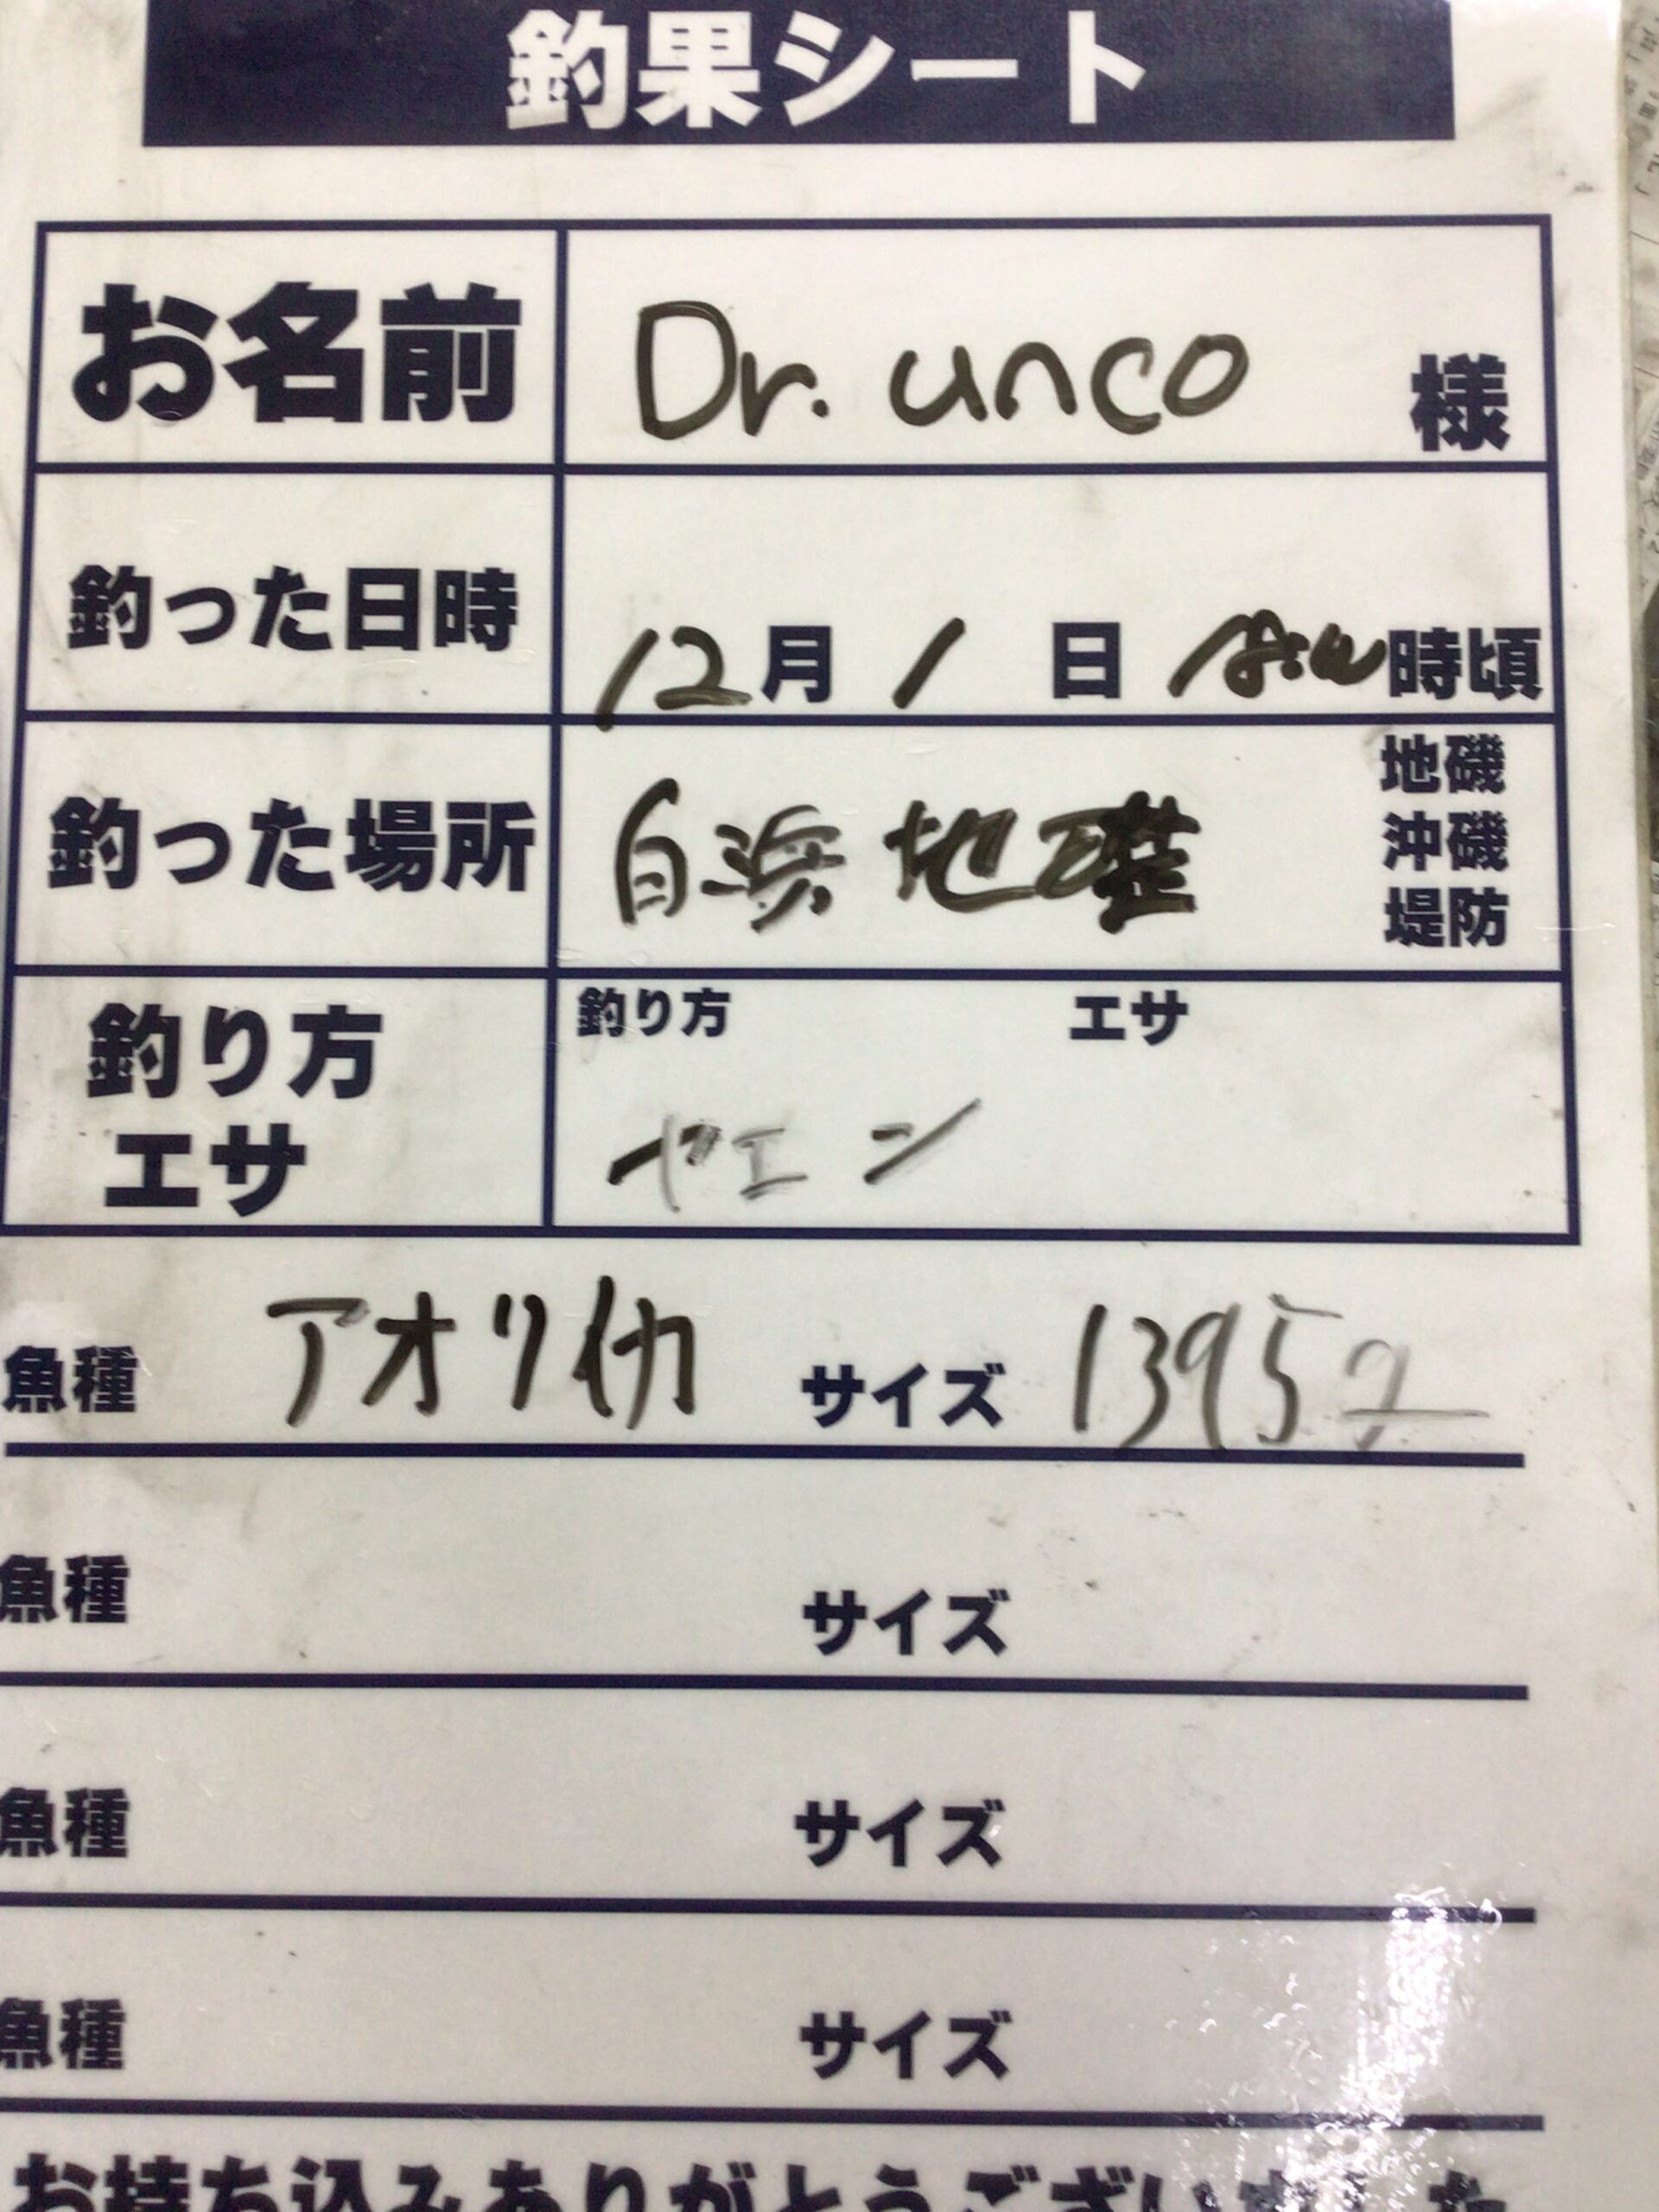 釣果シート
お名前 Dr. unco 様
釣った日時 12月 1 日 時頃
釣った場所 白浜 地磯 地磯
沖磯
堤防
釣り方 エサ
釣り方
エサ
ヤエン
魚種 アオリイカ サイズ 1395g
魚種 サイズ
魚種 サイズ
魚種 サイズ
お持ち込みありがとうございました